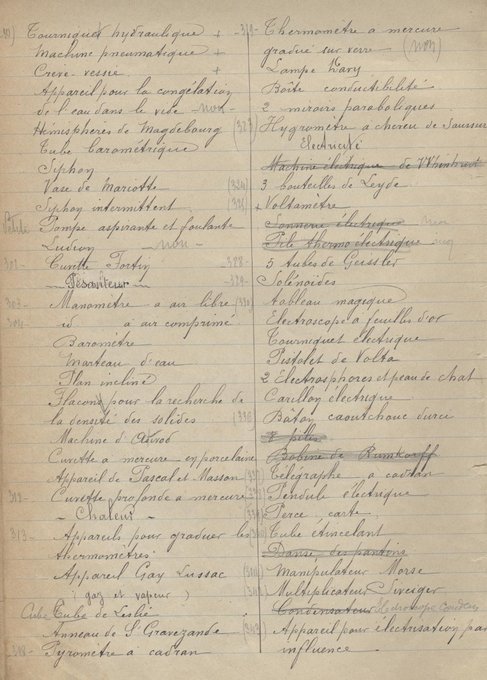 Tourniquet hydraulique +
Machine pneumatique +
Crève-vessie +
Appareil pour la congélation
de l'eau dans le vide non
Hémisphères de Magdebourg
Tube barométrique
Syphon
Vase de Mariotte (324)
Syphon intermittent
Pompe aspirante et foulante
Ludion - non -
Cuvette Fortin - 328 -
- Pésanteur - - 329 -
Manomètre a air libre
id a air comprimé
Baromètre
Marteau d'eau
Plan incliné
Flacons pour la recherche de
la densité des solides
Machine d'Atwod
Cuvette a mercure en porcelaine
Appareil de Pascal et Masson
Cuvette profonde a mercure
- Chaleur -
313 - Appareils pour graduer les
thermomètres
Appareil Gay Lussac
(gaz et vapeur)
Cube Tube de Leslie
Anneau de S'Gravezande
318 - Pyromètre à cadran
Thermomètre a mercure
gradué sur verre (non)
Lampe Davy
Boîte conductibilité
2 miroirs paraboliques
Hygromètre a cheveu de Saussure
Electricité
Machine électrique de Whimhurst
3 bouteilles de Leyde
+ Voltamètre
Sonnerie électrique non
Pile thermo électrique
5 Tubes de Geissler
Solénoïdes
Tableau magique
Electroscope a feuilles d'or
Tourniquet électrique
Pistolet de Volta
2 Electrophores et peau de chat
Carillon électrique
Bâton caoutchouc durci
piles
Bobine de Rumkorff
Télégraphe a cadran
Pendule électrique
Perce carte
Tube étincelant
Danse des pantins
Manipulateur Morse
Multiplicateur
Condensateur
Appareil pour électrisation par
influence